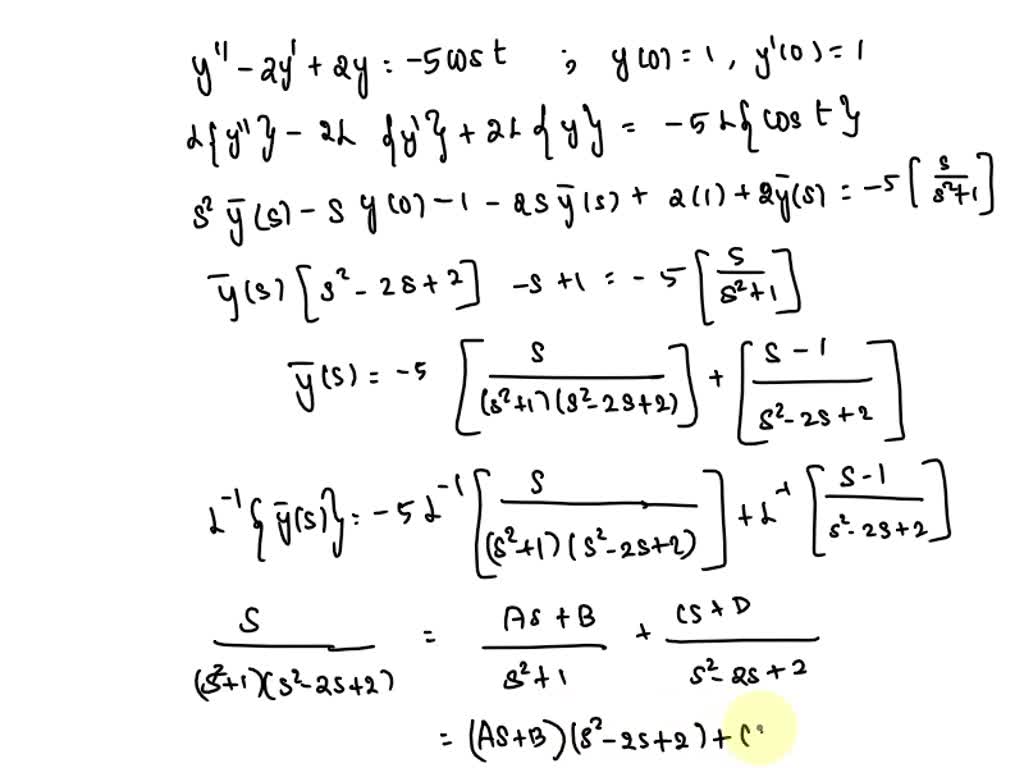 y'' - 2y' + 2y = -5 cos t ; y(0) = 1, y'(0) = 1
L{y''} - 2L {y'} + 2L {y} = -5 L{cos t}
s² ȳ(s) - s y(0) - 1 - 2s ȳ(s) + 2(1) + 2ȳ(s) = -5 [s/(s²+1)]
ȳ(s) [s² - 2s + 2] - s + 1 = -5 [s/(s²+1)]
ȳ(s) = -5 [s/((s²+1)(s²-2s+2))] + [(s-1)/(s²-2s+2)]
L⁻¹{ȳ(s)} = -5 L⁻¹ [s/((s²+1)(s²-2s+2))] + L⁻¹ [(s-1)/(s²-2s+2)]
s/((s²+1)(s²-2s+2)) = (As+B)/(s²+1) + (Cs+D)/(s²-2s+2)
= (As+B)(s²-2s+2) + (